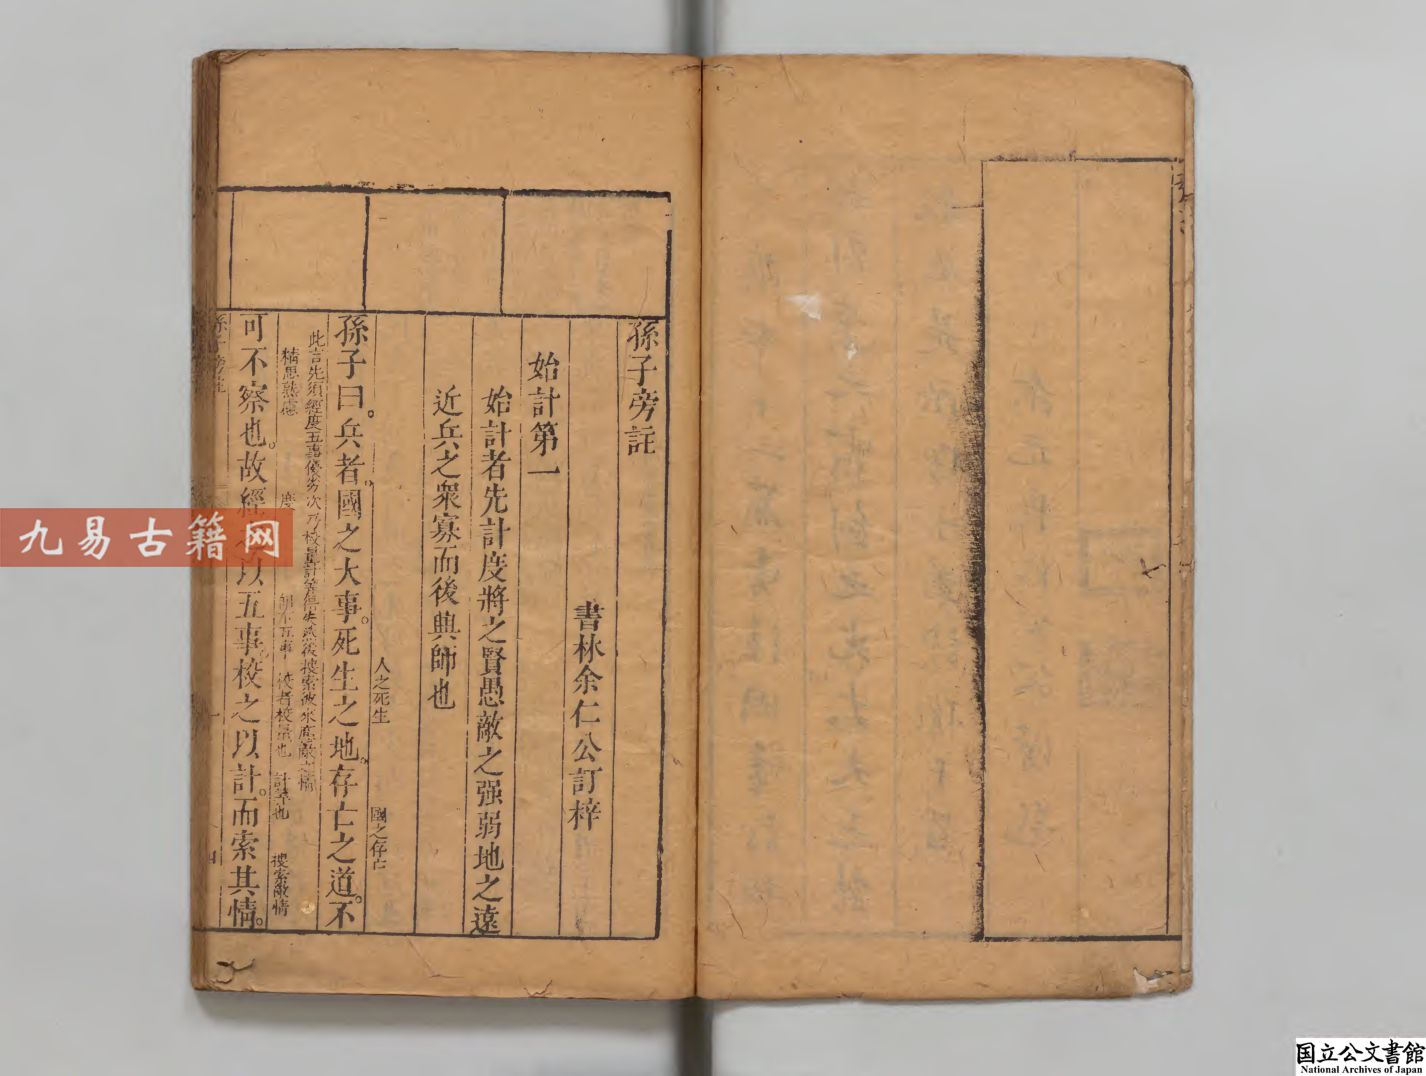 孫子旁註
書林余仁公訂梓
始計第一
始計者先計度將之賢愚敵之强弱地之遠
近兵之衆寡而後興師也
人之死生 國之存亡
孫子曰。兵者。國之大事。死生之地。存亡之道。不
此言先須經度五事優劣次乃校量計算得失然後搜索彼
精思熟慮 度 校者校量也 計算也 搜索敵情
可不察也。故經 以五事。校之以計。而索其情。
九易古籍网
国立公文書館
National Archives of Japan